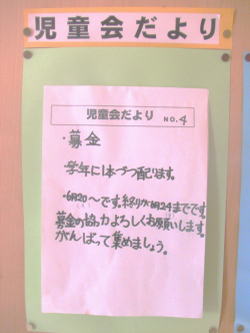 児童会だより
児童会だより NO.4
・募金
学年に1本づつ配ります。
・6月20〜です。終りが6月24までです。
募金の協力よろしくお願いします。
がんばって集めましょう。